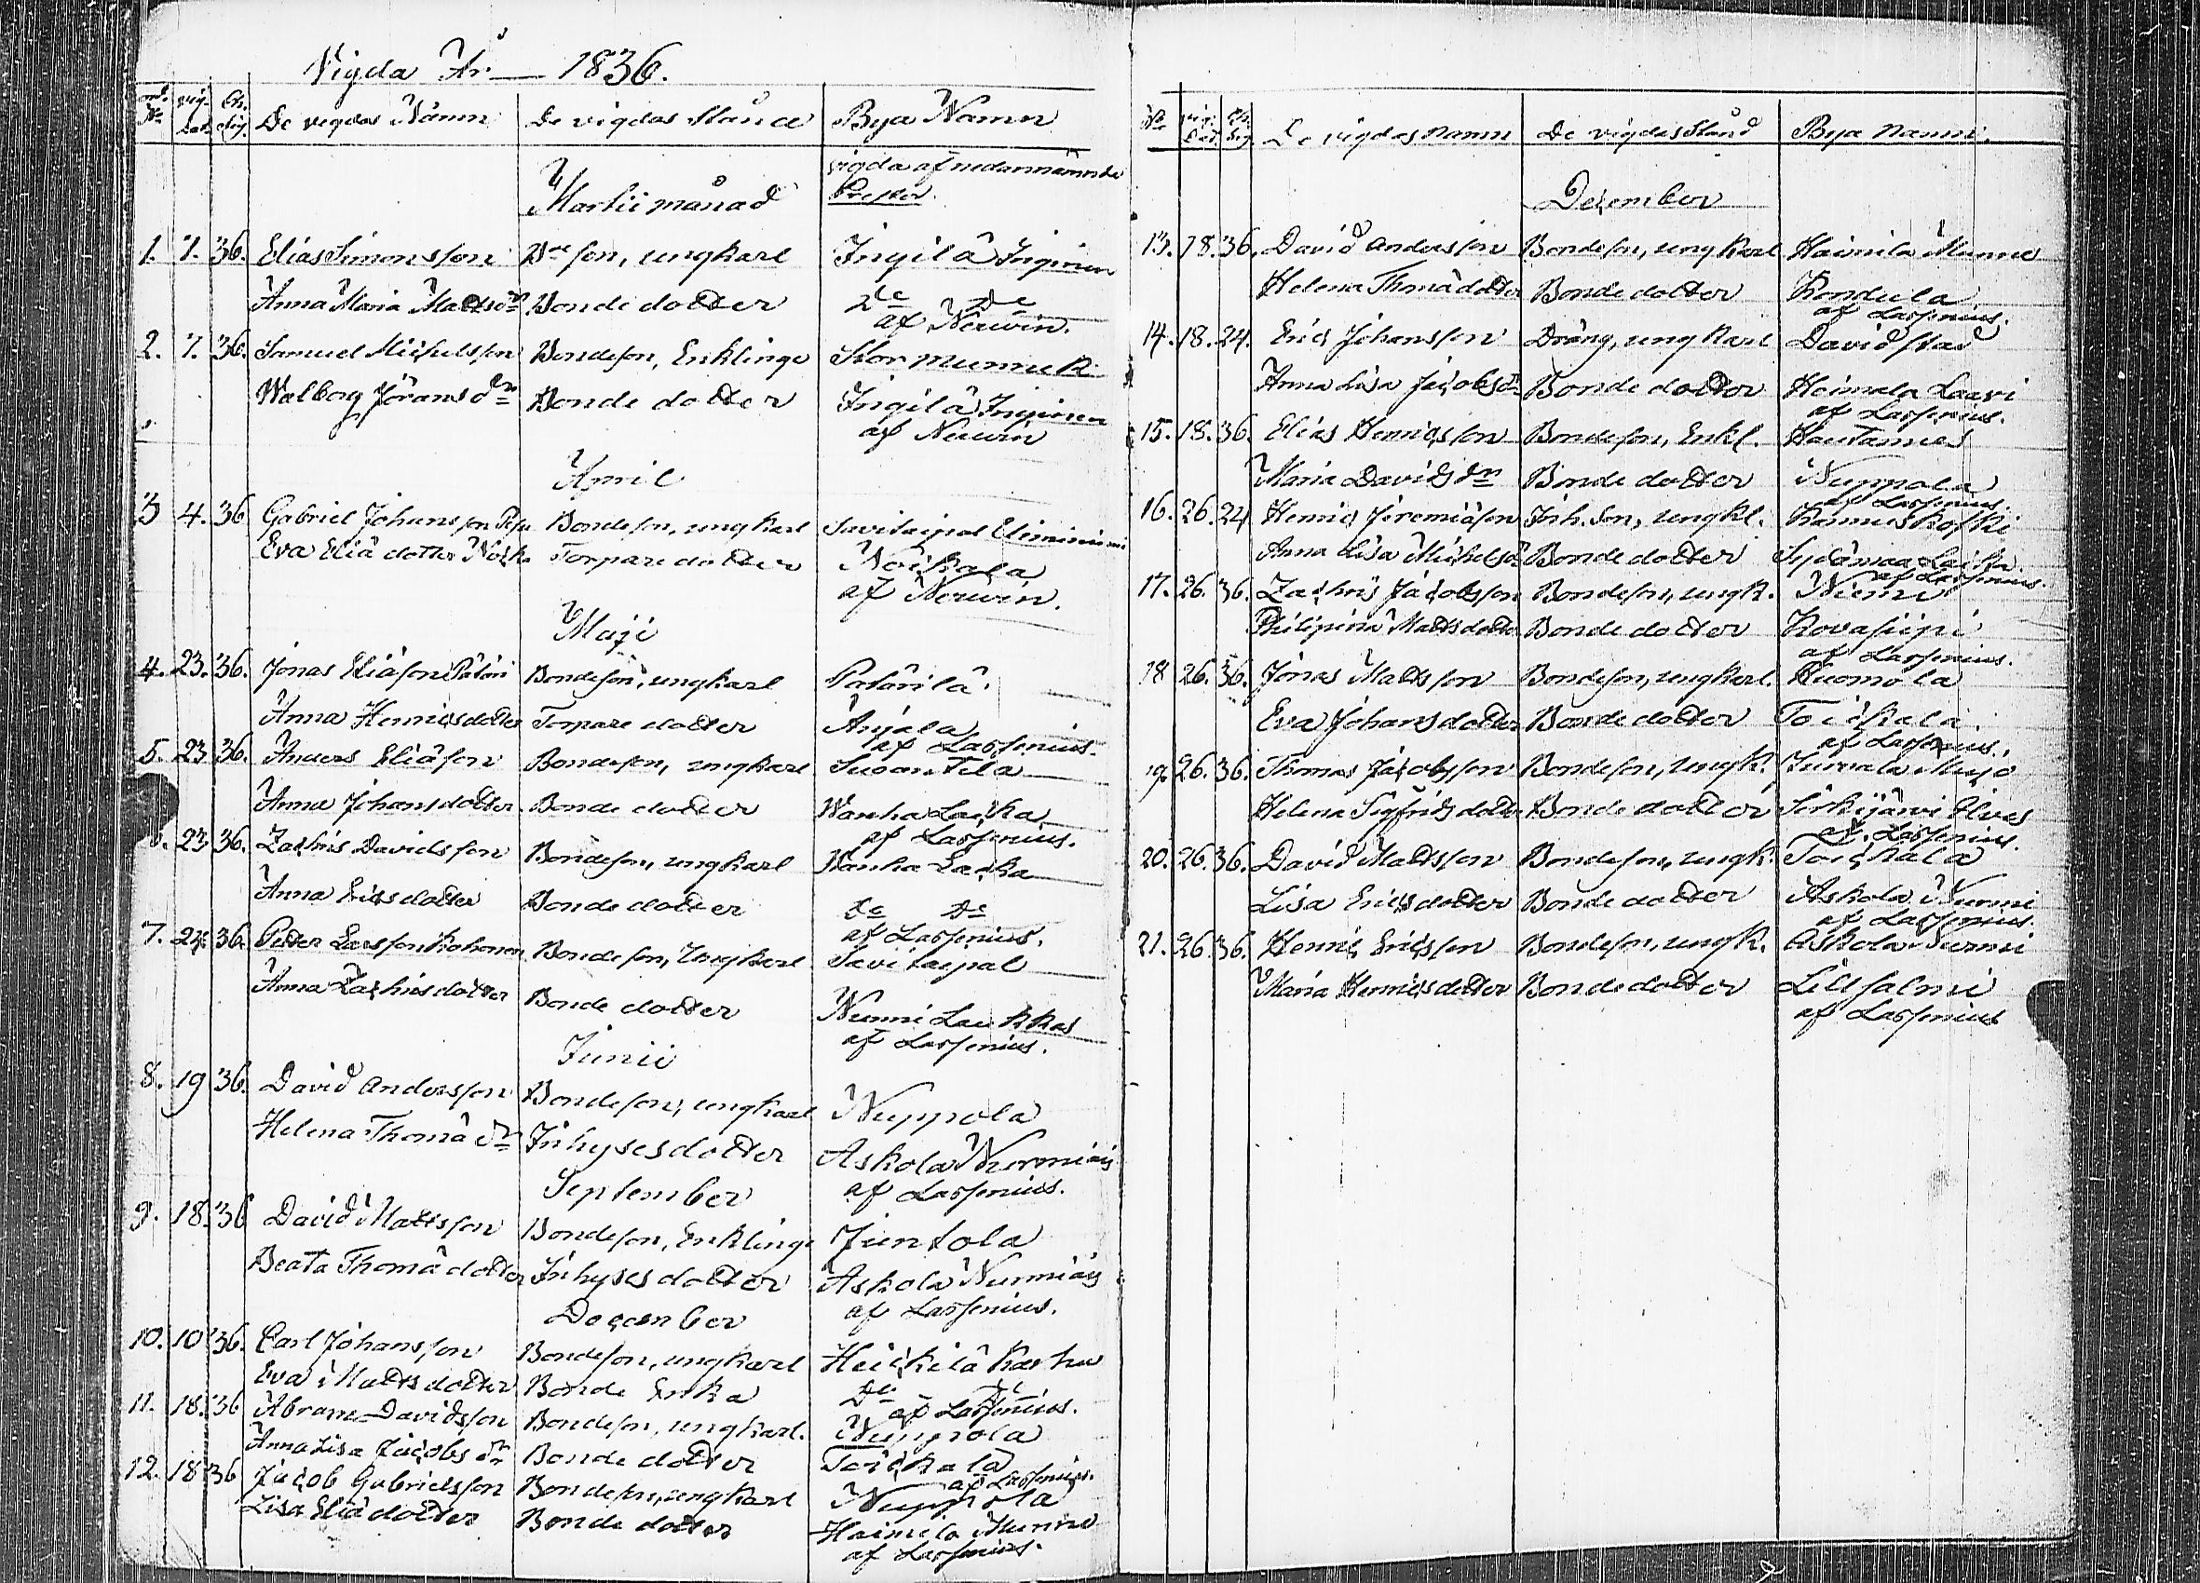 Vigda År 1836.
No vig. Dat. Ch. Sig. De vigdas Namn De vigdas Stånd Bya Namn
Martii månad vigda af nedannämnde Prester.
1. 7. 36. Elias Simonsson Bde son, ungkarl Ingilä Inginen
Anna Maria Mattsdr Bonde dotter De De
af Nerwin.
2. 7. 36. Samuel Michelsson Bondeson, Enklinge Kormunnik
Walborg Jöransdr Bonde dotter Ingilä Inginen
af Nerwin
April
3 4. 36 Gabriel Johansson Bondeson, ungkarl Savitaipal
Eva Eliä dotter Torpare dotter Noickala
af Nerwin.
Maji
4. 23. 36. Jonas Eliäson Pätäri Bondeson, ungkarl Patärilä.
Anna Henricsdotter Torpare dotter Anjala
af Lassenius.
5. 23 36. Anders Eliäson Bondeson, ungkarl Suoanttila
Anna Johansdotter Bonde dotter Wanha Lacka
af Lassenius.
6. 23 36. Zachris Davidsson Bondeson, ungkarl Wanha Lacka
Anna Ericsdotter Bonde dotter De De
af Lassenius.
7. 24. 36. Petter Larsson Kohonen Bondeson, Ungkarl Savitaipal
Anna Zachrisdotter Bonde dotter Nurmi Laukkas
af Lassenius.
Junii
8. 19 36. David Andersson Bondeson, ungkarl Nuppola
Helena Thomä dr Inhyses dotter Askola Nurmiais
af Lassenius.
September
9. 18. 36 David Mattsson Bondeson, Enklinge Juntola
Beata Thomä dotter Inhyses dotter Askola Nurmiais
af Lassenius.
December
10. 10 36. Carl Johansson Bondeson, ungkarl Heickilä Karhu
Eva Mattsdotter Bonde Enka De De
af Lassenius.
11. 18. 36 Abram Davidsson Bondeson, ungkarl. Nuppola
Anna Lisa Jacobs dr Bonde dotter Toickala
af Lassenius.
12. 18. 36 Jacob Gabrielsson Bondeson, ungkarl Nuppola
Lisa Eliä dotter Bonde dotter Haimila Munne
af Lassenius.
No vig. Dat. Ch. Sig. De vigdas namn De vigdas Stånd Bya namn.
December
13. 18. 36. David Andersson Bondeson, ungkarl Haimila Munne
Helena Thomä dotter Bonde dotter Kondula
af Lassenius.
14. 18. 24. Eric Johansson Dräng, ungkarl Davidstad
Anna Lisa Jacobsdr Bonde dotter Heimala Laari
af Lassenius.
15. 18. 36. Elias Henricsson Bondeson, Enkl. Hautames
Maria Davidsdr Bonde dotter Nuppola
af Lassenius.
16. 26. 24 Henric Jeremiäson Inh. Son, ungkl. Kannuskoski
Anna Lisa Michelsdr Bonde dotter Sydämaa Laika
af Lassenius.
17. 26. 36. Zachris Jacobsson Bondeson, ungk. Niemi
Philipina Mattsdotter Bonde dotter Kovasipi
af Lassenius.
18 26. 36. Jonas Mattsson Bondeson, ungkarl. Huomola
Eva Johansdotter Bonde dotter Toickala
af Lassenius.
19. 26. 36. Thomas Jacobsson Bondeson, ungk. Jurvala Mujo
Helena Sigfridsdotter Bonde dotter Sirkijärvi Ilves
af Lassenius.
20. 26. 36. David Mattsson Bondeson, ungk. Toickala
Lisa Ericsdotter Bonde dotter Askola Nurmi
af Lassenius.
21. 26. 36. Henric Ericsson Bondeson, ungk. Askola Nurmi
Maria Henricsdotter Bonde dotter Lillsalmi
af Lassenius